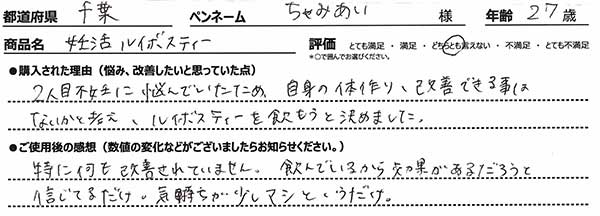 都道府県 千葉 ペンネーム ちゃみあい 様 年齢 27 歳
商品名 妊活ルイボスティー 評価 とても満足・満足・どちらとも言えない・不満足・とても不満足
*○で囲んでお選びください。
●購入された理由（悩み、改善したいと思っていた点）
2人目不妊に悩んでいたため、自身の体作り、改善できる事は
ないかと考え、ルイボスティーを飲もうと決めました。
●ご使用後の感想（数値の変化などがございましたらお知らせください。）
特に何も改善されていません。飲んでいるから効果があるだろうと
信じてるだけ。気持ちが少しマシというだけ。